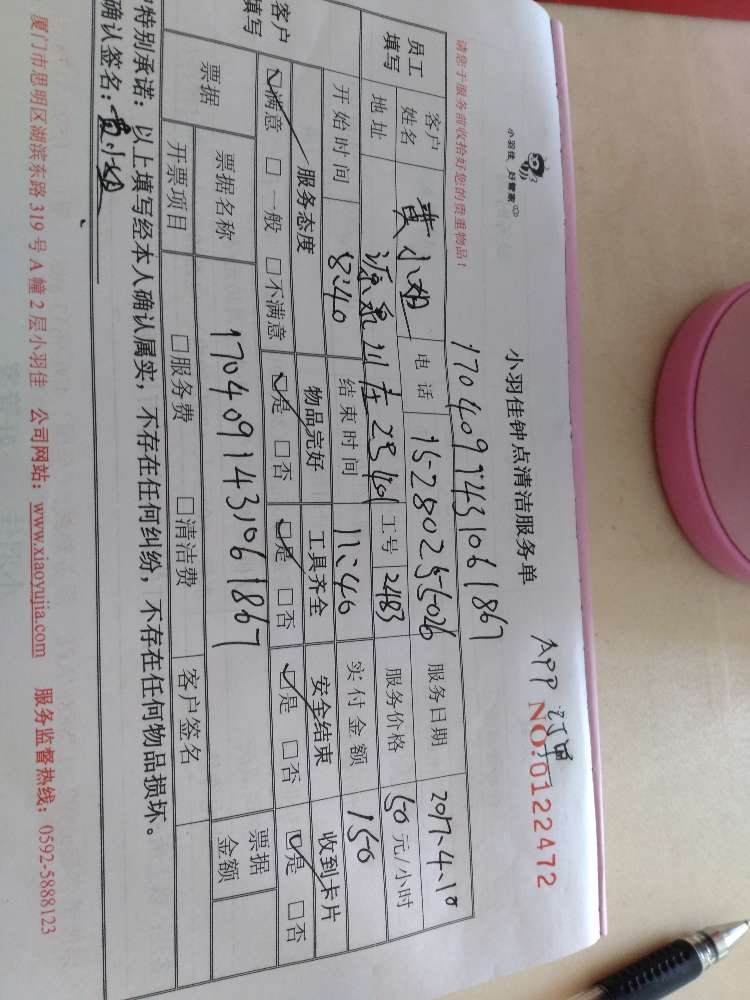 小羽佳 好管家
小羽佳钟点清洁服务单
APP 订单
NO:0122472
请您于服务前收拾好您的贵重物品!
1704091431061867
员工填写 客户姓名 黄小姐 电话 15280255026 服务日期 2017.4.10
地址 源泉山庄 29 401 工号 2483 服务价格 50 元/小时
开始时间 8:40 结束时间 11:40 实付金额 150
客户填写 服务态度 物品完好 工具齐全 安全结束 收到卡片
☑满意 □一般 □不满意 ☑是 □否 ☑是 □否 ☑是 □否 ☑是 □否
票据 票据名称 1704091431061867 票据金额
开票项目 □服务费 □清洁费 客户签名
特别承诺:以上填写经本人确认属实,不存在任何纠纷,不存在任何物品损坏。
确认签名:黄小姐
厦门市思明区湖滨东路 319 号 A 幢 2 层小羽佳 公司网站:www.xiaoyujia.com 服务监督热线:0592-5888123